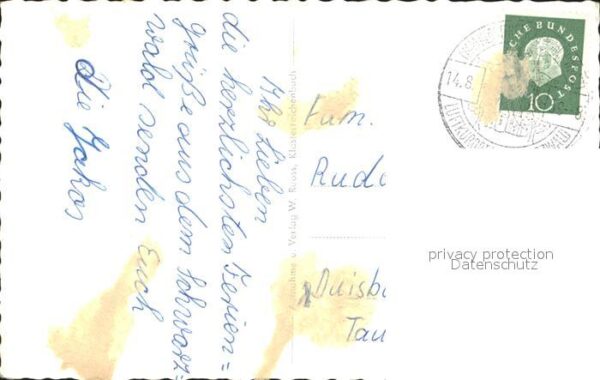 Ihr Lieben
die herzlichsten Ferien=
grüße aus dem Schwarz=
wald senden Euch
Die Jakos
Aufnahme u. Verlag W. Rooss, Klosterreichenbach
Fam.
Rudo
Duisb
Tau
14.8.
LUFTKURORT
CHE BUNDESPOST
10
privacy protection
Datenschutz